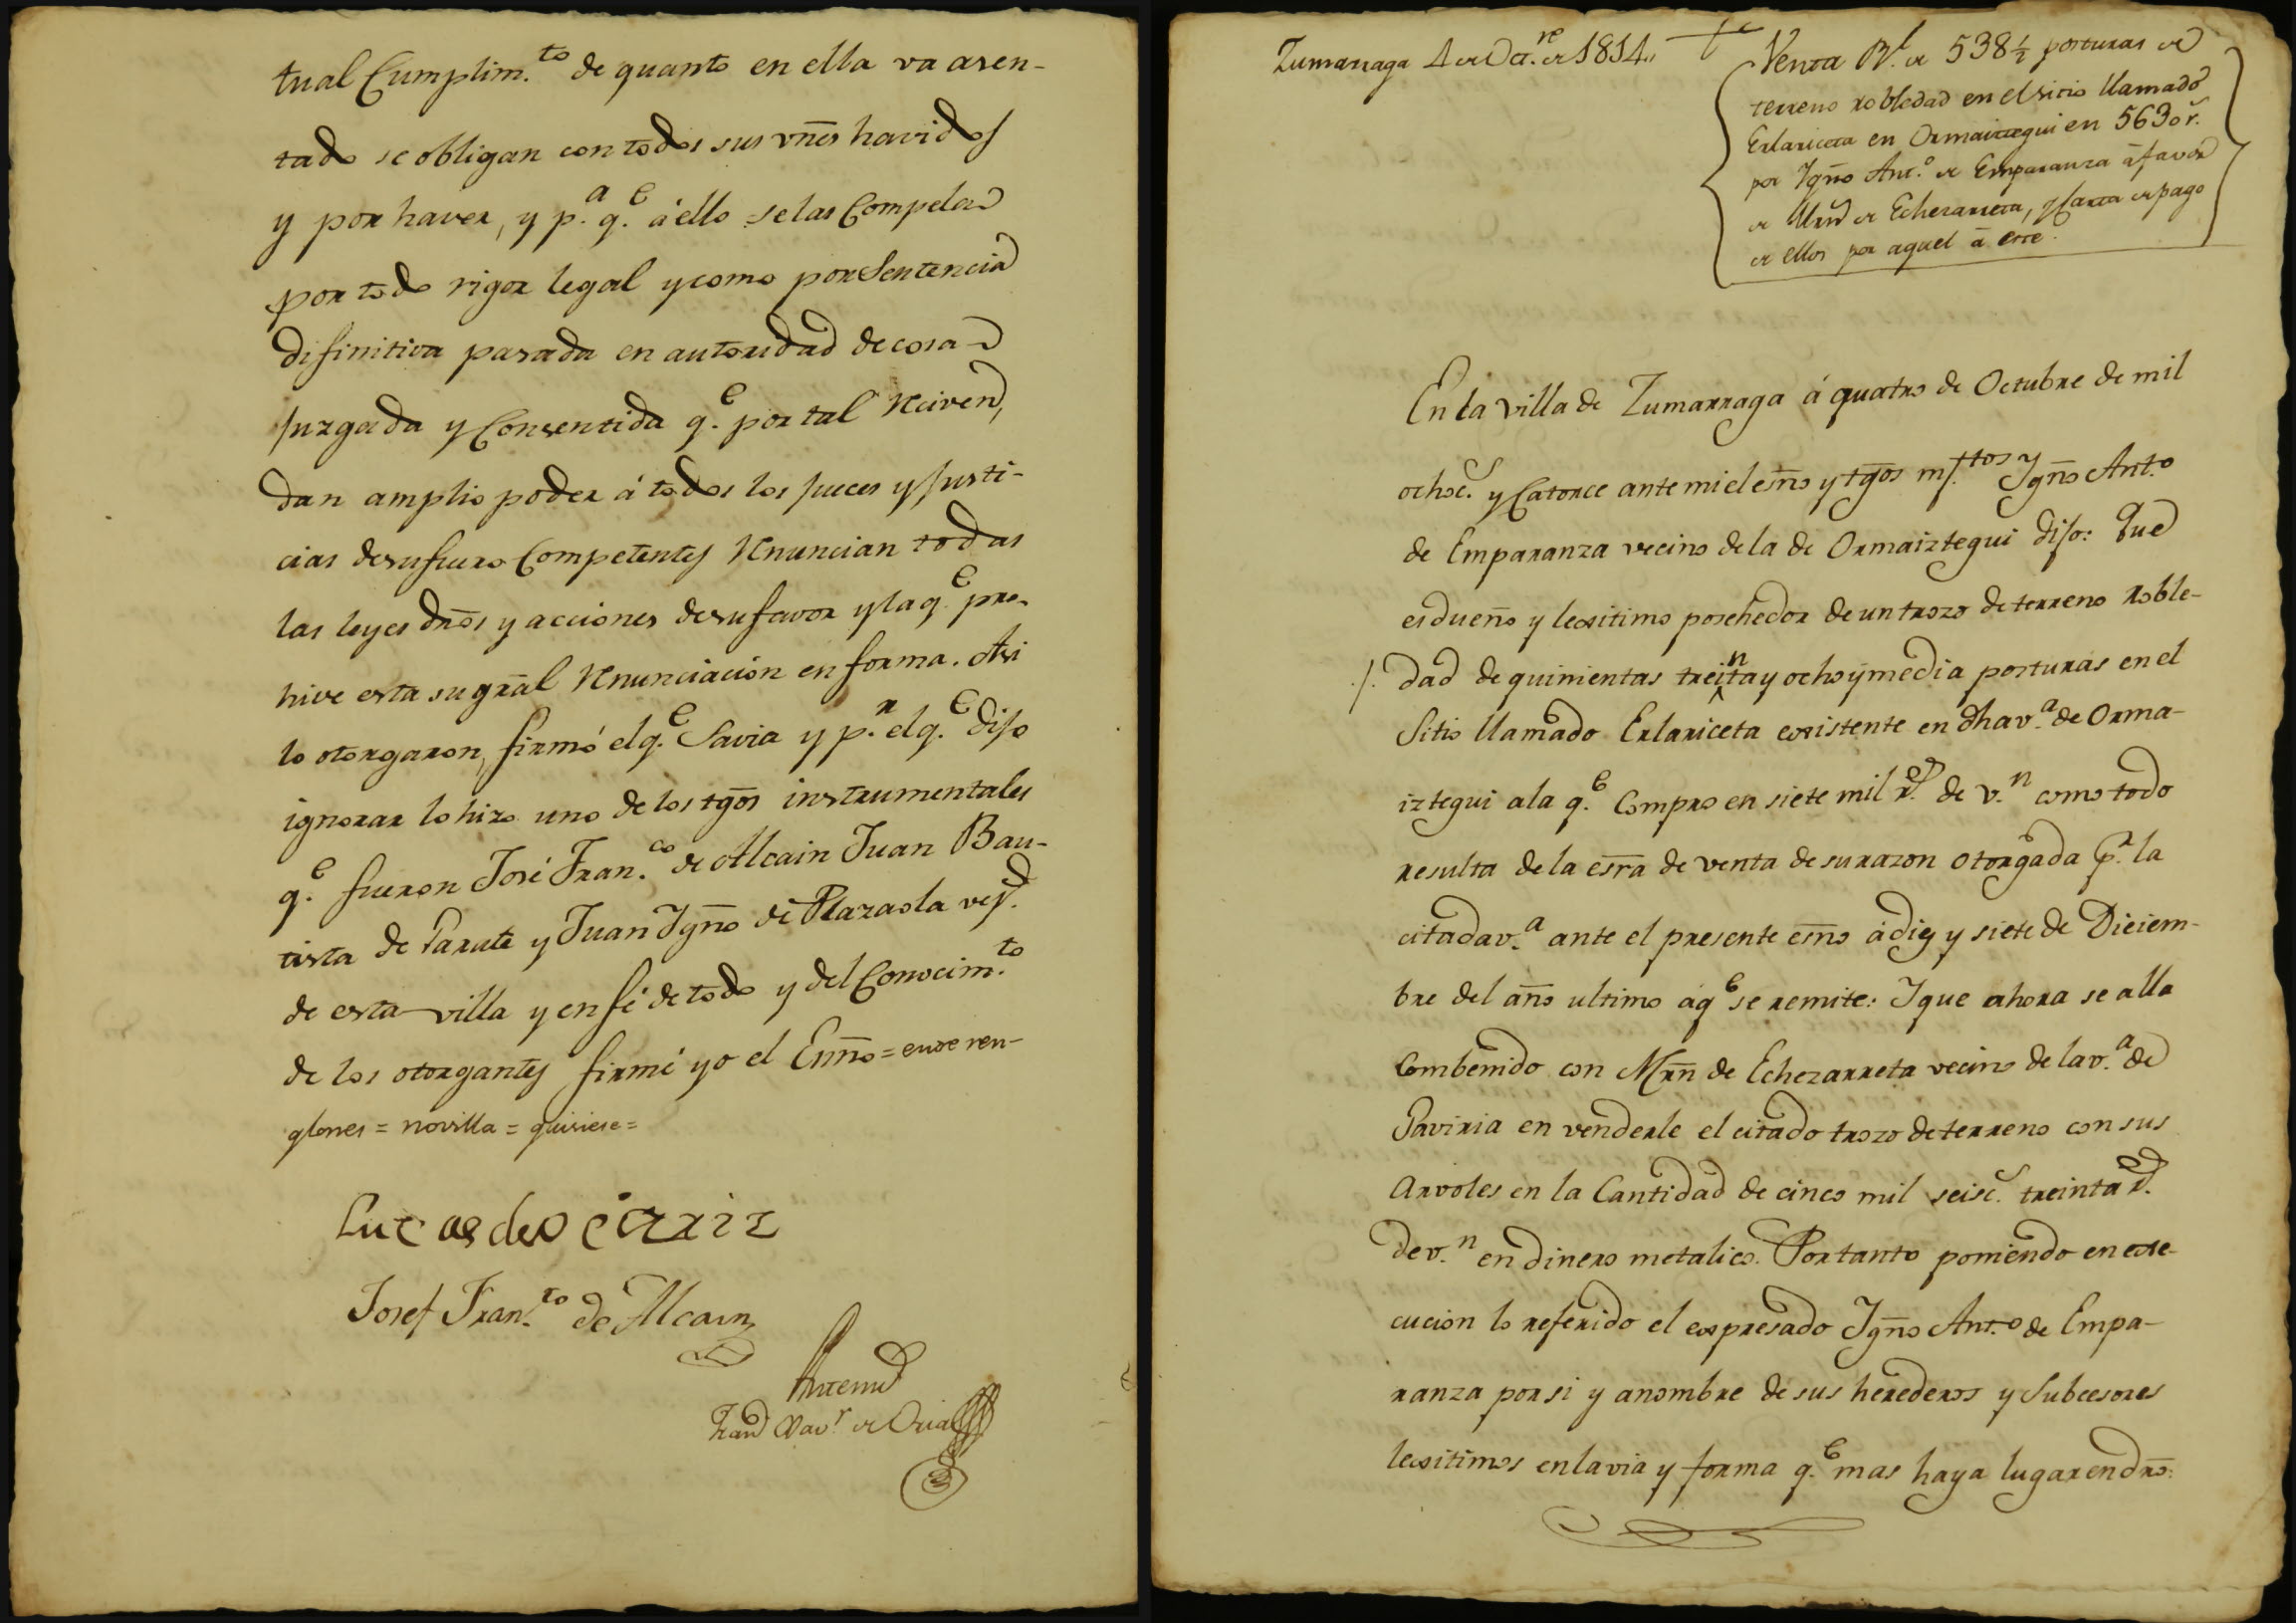 tual Cumplim.to de quanto en ella va asen-
tado se obligan con todos sus vñes havidos
y por haver, y p.a q.e á ello se las Compela
por todo rigor legal y como por Sentencia
difinitiva pasada en autoridad de cosa
juzgada y Consentida q.e por tal reciven,
dan amplio poder á todos los jueces y justi-
cias de su fuero Competentes renuncian todas
las leyes drõs y acciones de su favor y la q.e pro-
hive esta su grãl renunciacion en forma. Asi
lo otorgaron, firmó el q.e Savia y p.r el q.e dijo
ignorar lo hizo uno de los tgõs instrumentales
q.e fueron José Fran.co de Alcain Juan Bau-
tista de Parute y Juan Ygñõ de Plazaola vez.s
de esta villa y en fé de todo y del Conocim.to
de los otorgantes firmé yo el Esnño = entre ren-
glones = novilla = quisiese =
Lucas de Ocáriz
Josef Fran.co de Alcain
Antemi
Fran.co Xav.r de Oria
Zumarraga 4 de Oct.re de 1814.,
Venta Rl. de 538 ½ posturas de
terreno robledad en el sitio llamado
Erlariceta en Ormaiztegui en 5630 r.
por Ygño Ant.o de Emparanza á favor
de Mrn de Echezarreta, y Carta de pago
de ellos por aquel á este.
En la villa de Zumarraga á quatro de Octubre de mil
ochoc.s y Catorce ante mi el esño y tgõs mf.ttos Ygño Ant.o
de Emparanza vecino de la de Ormaiztegui dijo: Que
es dueño y lexitimo posehedor de un trozo de terreno roble-
./. dad de quinientas treinta y ocho y media posturas en el
Sitio llamado Erlariceta existente en dha v.a de Orma-
iztegui a la q.e Compro en siete mil r.s de v.n como todo
resulta de la esrã de venta de su razon otorgada p.r la
citada v.a ante el presente esño á diez y siete de Diciem-
bre del año ultimo á q.e se remite: Y que ahora se alla
Combenido con Mrñ de Echezarreta vecino de la v.a de
Gaviria en venderle el citado trozo de terreno con sus
Arvoles en la Cantidad de cinco mil seisc.s treinta r.s
de v.n en dinero metalico. Por tanto poniendo en exe-
cucion lo referido el expresado Ygño Ant.o de Empa-
ranza por si y a nombre de sus herederos y Subcesores
lexitimos en la via y forma q.e mas haya lugar en drõ: